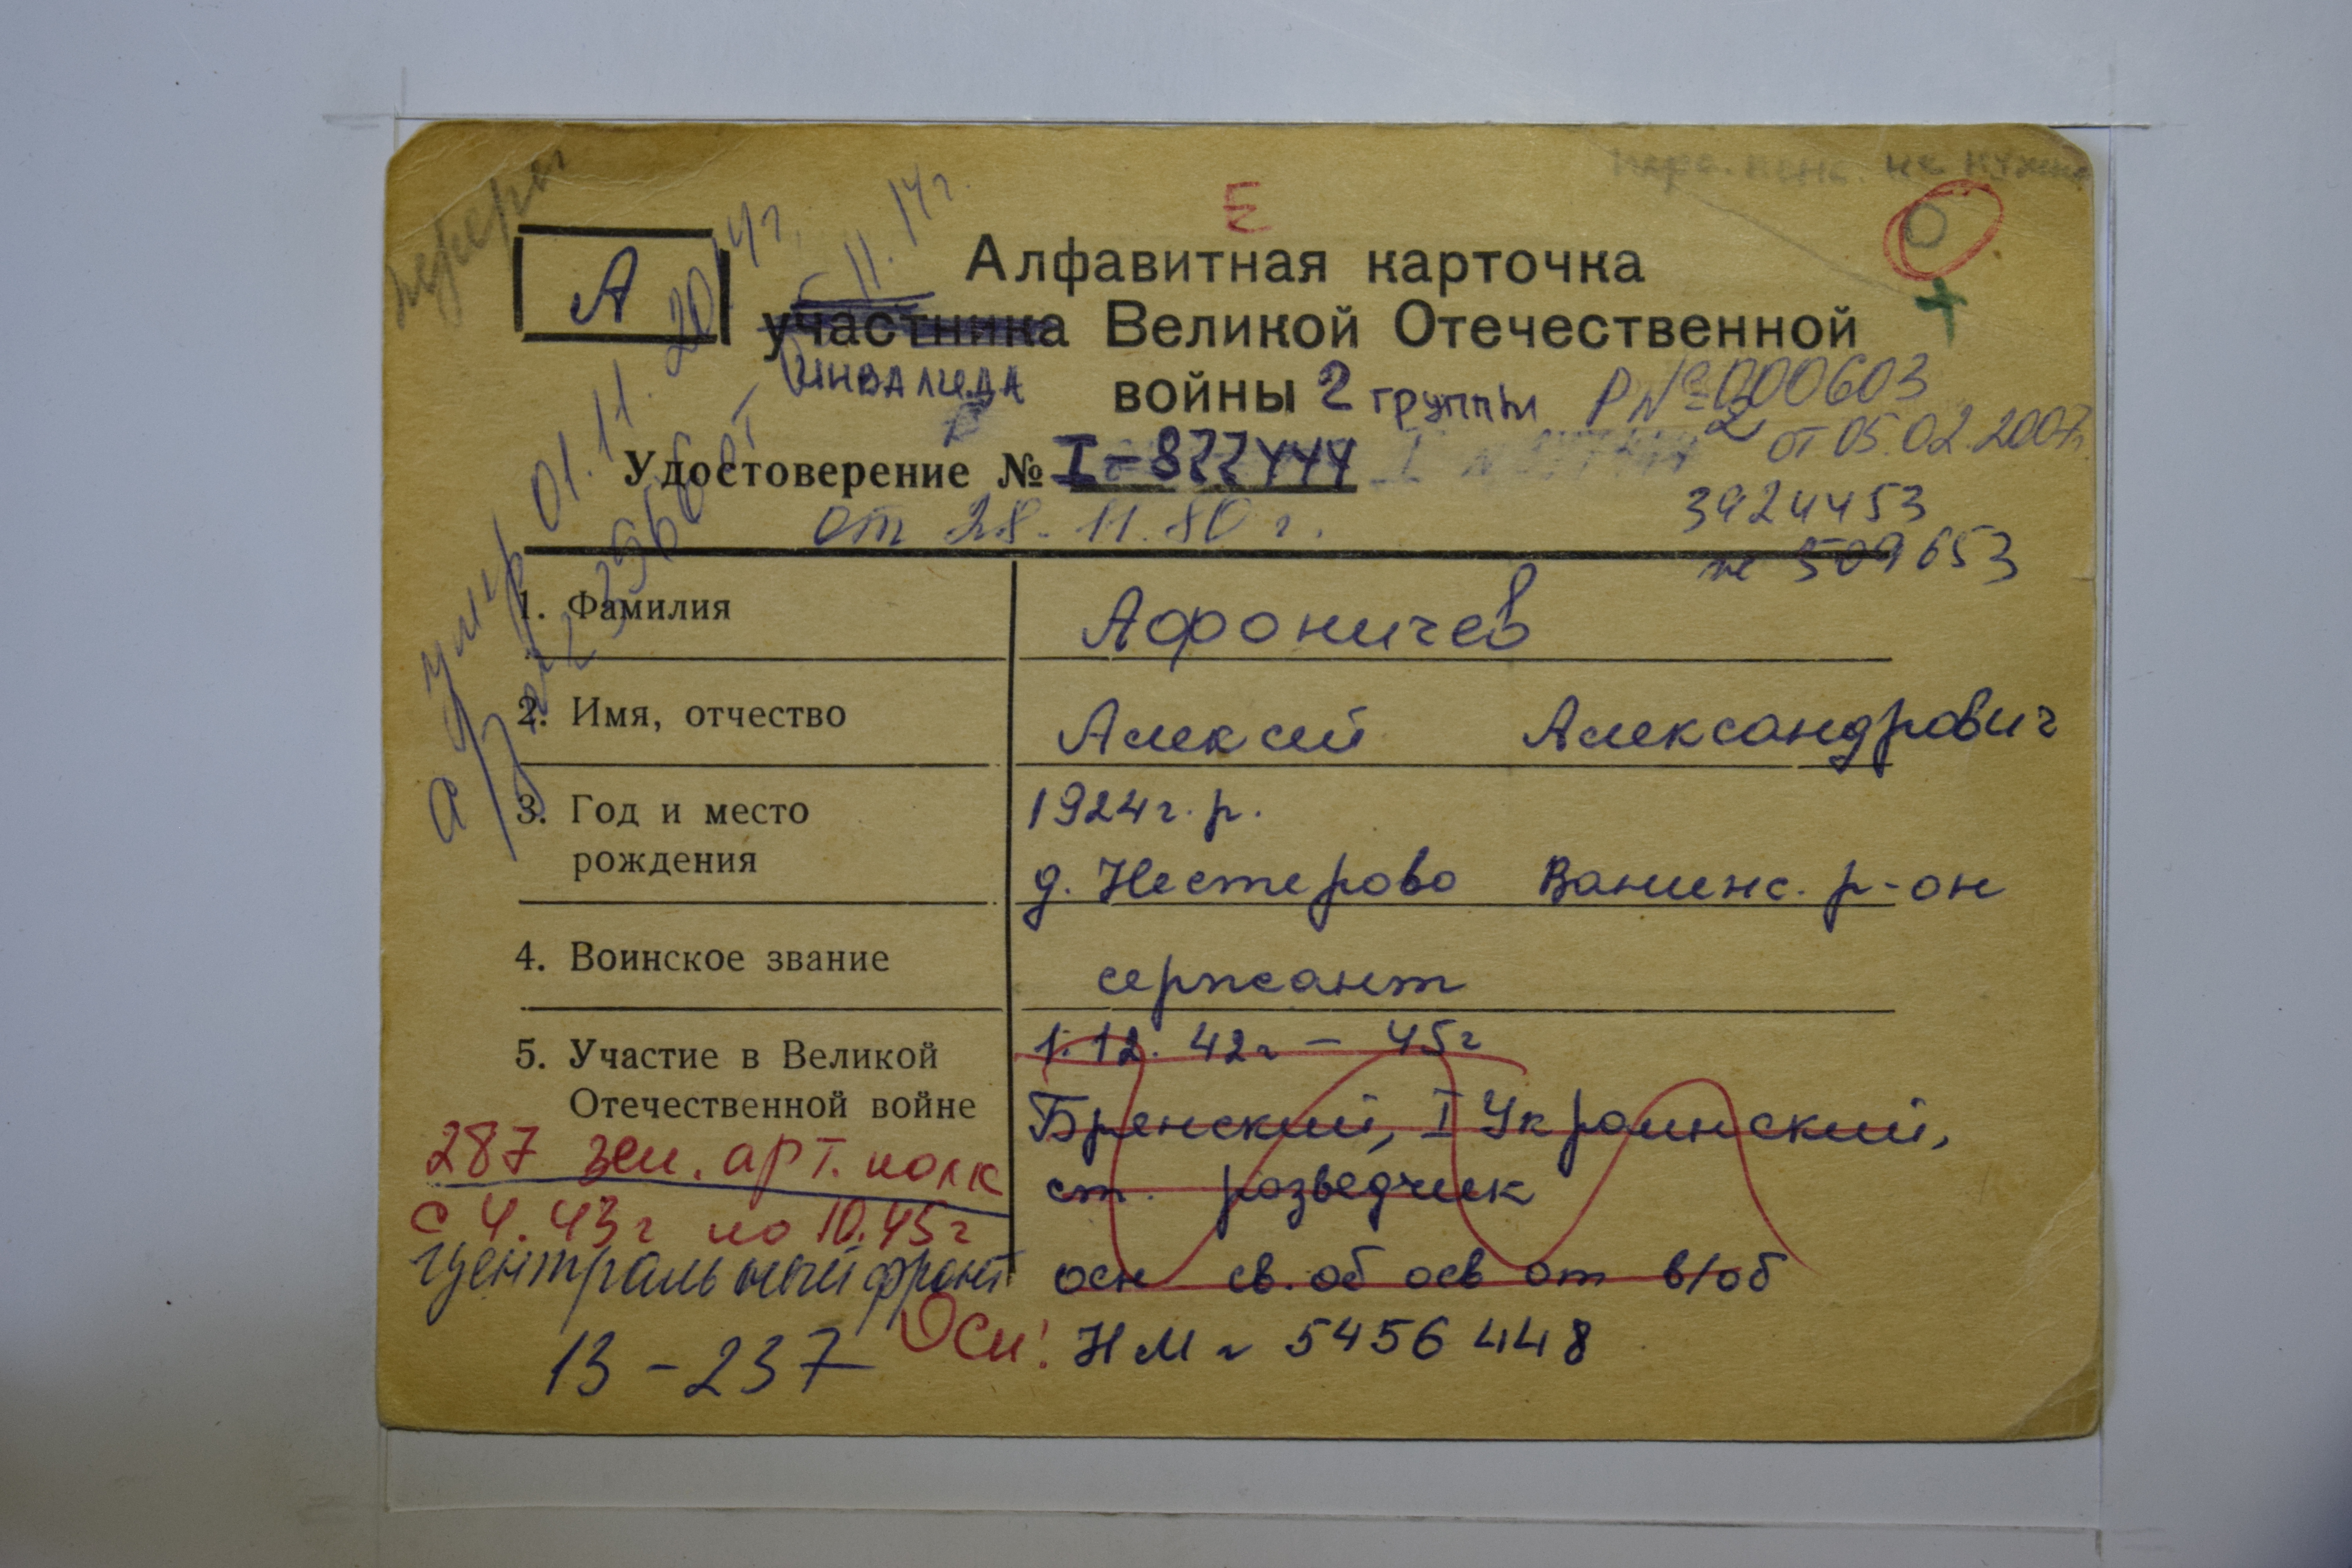 Е
А
Алфавитная карточка
участника Великой Отечественной
инвалида
войны 2 группы
Р № 000603
от 05.02.2007г.
Удостоверение № I-877444
от 28.11.80 г.
3924453
509653
умер 01.11.2014г.
1. Фамилия
Афоничев
2. Имя, отчество
Алексей Александрович
3. Год и место рождения
1924г.р.
д. Нестерово Ванинс. р-он
4. Воинское звание
сержант
5. Участие в Великой Отечественной войне
1.12.42г – 45г
Брянский, I Украинский,
ст. разведчик
287 зен. арт. полк
с 4.43г по 10.45г
Центральный фронт
осн св. об осв от в/об
Осн! НМ г 5456448
13-237